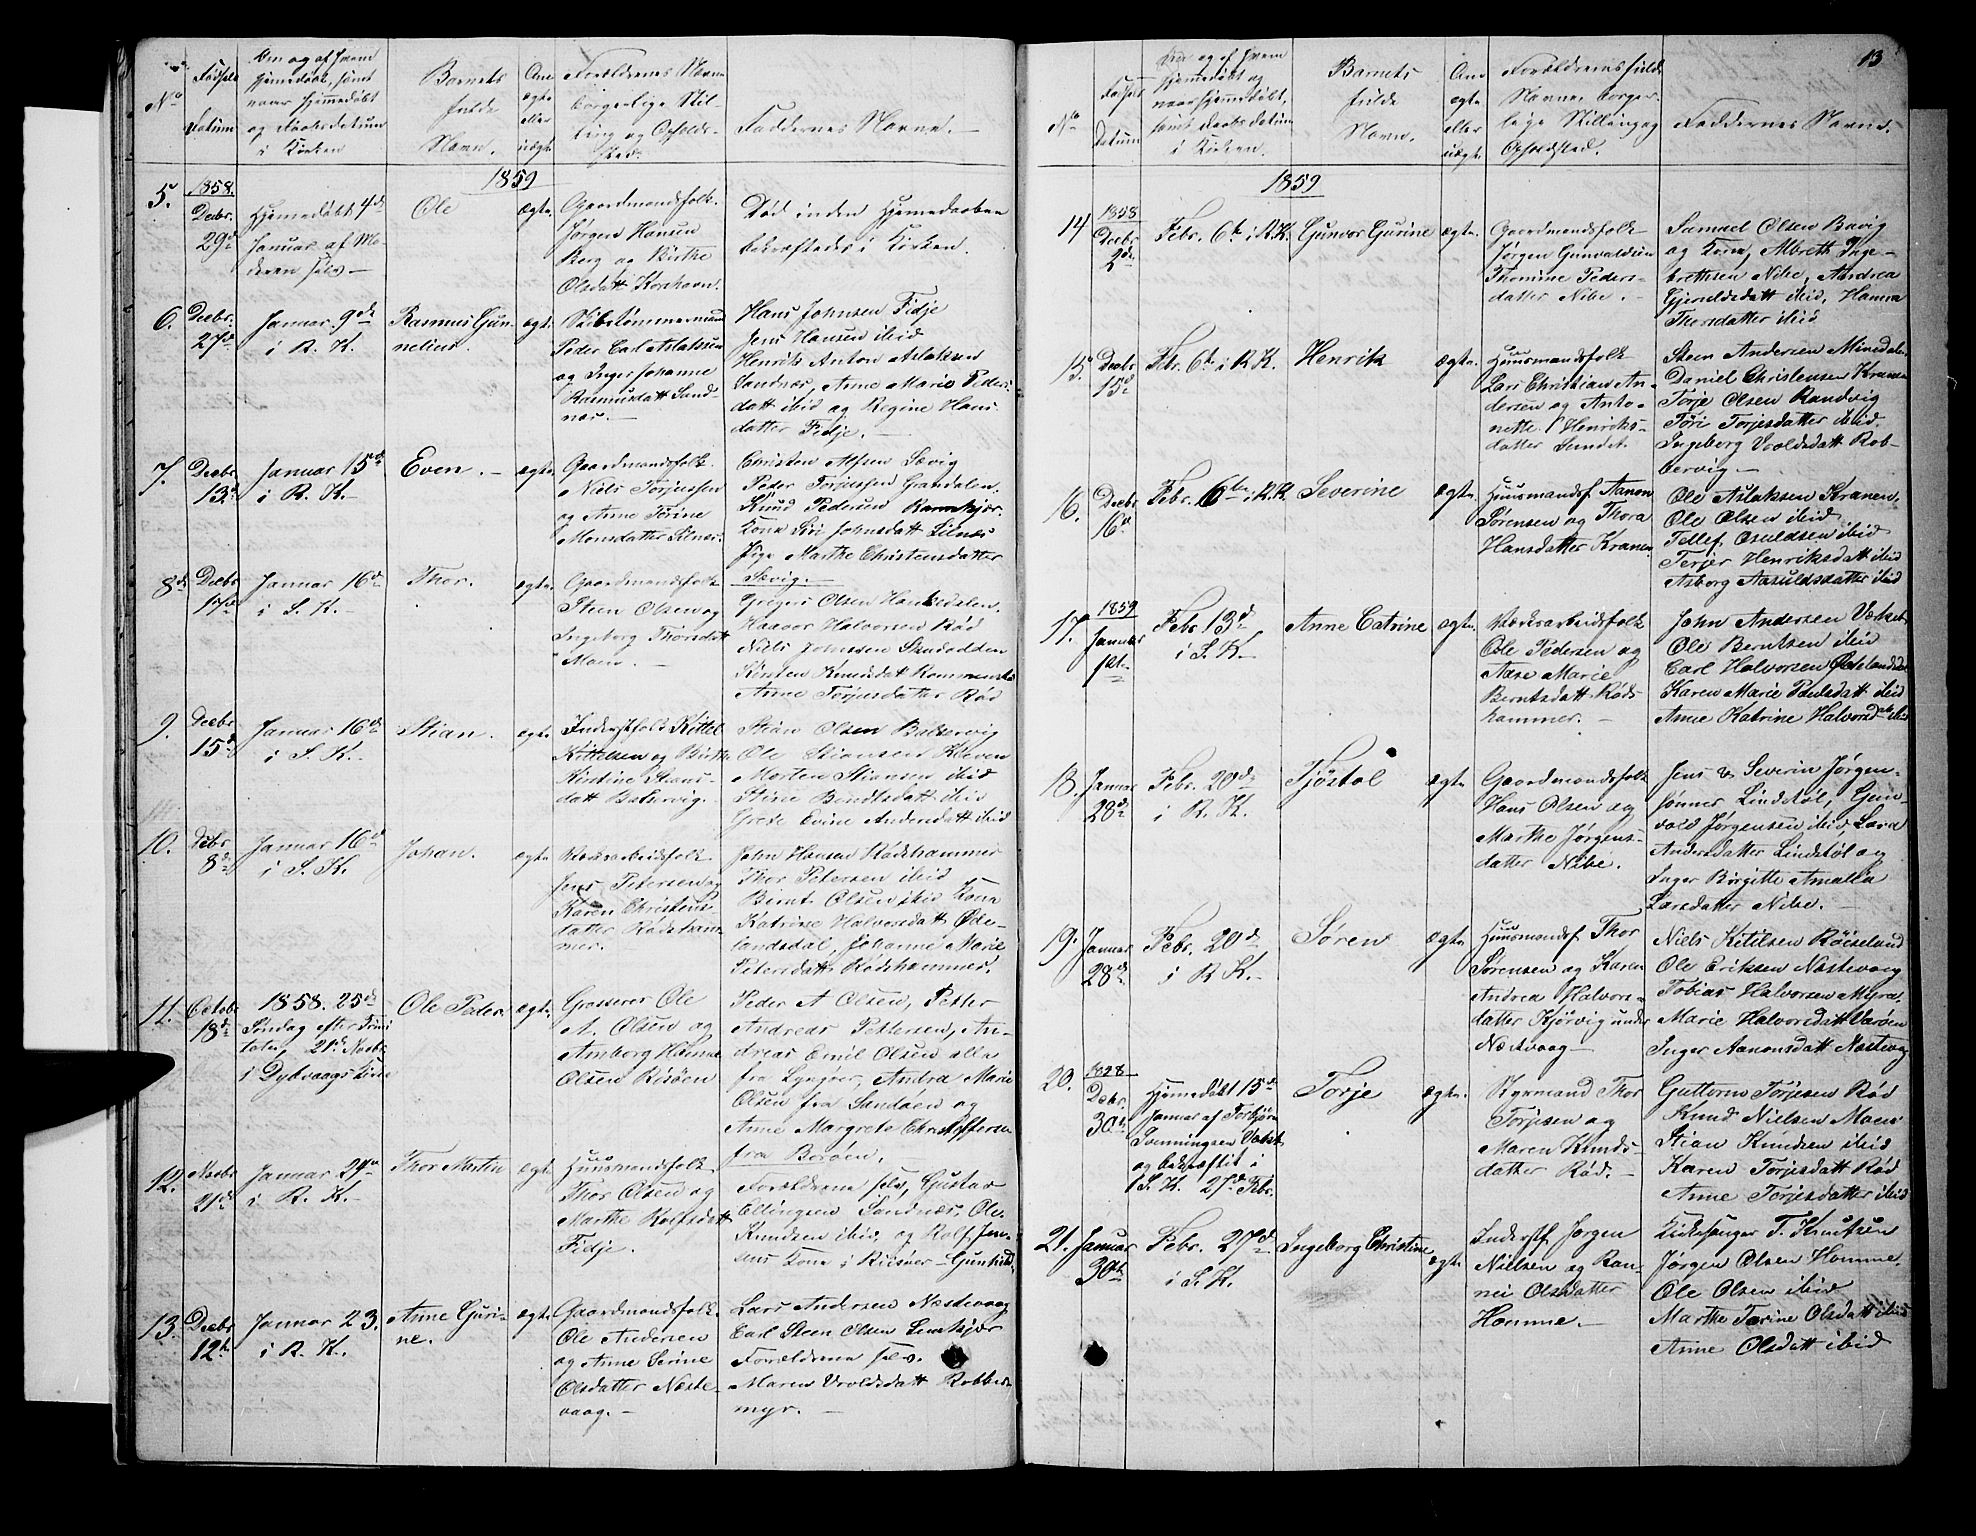 No.
Fødsels
Datum
Om og af hvem
hjemmedøbt, samt
naar hjemmedøbt
og Daabsdatum
i Kirken
Barnets
fulde
Navn.
Om
ægte
eller
uægte
Forældrenes Navne
borgerlige Stil-
ling og Opholds-
sted.
Faddernes Navne. —
1859
5.
1858.
Decbr.
29de
Hjemmedøbt 4de
Januar af Mo-
deren selv —
Ole
ægte.
Gaardmandsfolk.
Jørgen Hansen
Berg og Birthe
Olsdatt Korshavn.
Død inden Hjemmedaaben
bekræftedes i Kirken.
6.
Decbr.
27de
Januar 9de
i R. K.
Rasmus Gun-
nelius.
ægte.
Peder Carl Aslaksen
og Inger Johanne
Rasmusdatt Sand-
nes. —
Hans Johnsen Fidje
Jens Hansen ibid
Henrik Anton Aslaksen
Sandnæs, Anne Marie Peders-
datt ibid og Regine Hans
datter Fidje. —
7.
Decbr
13de
Januar 15de
i R. K. —
Even. —
ægte.
Gaardmandsfolk.
Niels Torjussen
og Anne Torine
Monsdatter Lilnes.
Christen Alfsen Sævig
Peder Torjussen Grændalen.
Knud Pedersen
Kona Siri Johnsdatt Lilnæs
Pige Marthe Christensdatter
Sævig. —
8de
Decbr
17de
Januar 16de
i S. K. —
Thor.
ægte.
Gaardmandsfolk
Steen Olsen og
Ingeborg Thorsdatt
Moen. —
Gregers Olsen
Haavor Halvorsen Rød
Niels Johnsen
Kirsten Knudsdatt
Anne Torjusdatter Rød
9.
Decbr
15de
Januar 16de
i S. K. —
Stian.
ægte.
Inderstfolk Kittel
Kittelsen og Birthe
Kirstine Stians-
datt Baltervig. —
Stian Olsen Baltervig
Ole Stiansen Kleven
Morten Stiansen ibid
Stine Bendtsdatt ibid
Grete Evine Andersdatt ibid
10.
Decbr
8de
Januar 16de
i S. K.
Johan.
ægte
Værksarbeidsfolk
Jens Petersen og
Karen Christens-
datter Rødsham-
mer.
John Hansen Rødshammer
Thor Petersen ibid
Bernt Olsen ibid Kona
Katrine Halvorsdatt Øde-
landsdal, Johanne Marie
Petersdatt Rødshammer.
11.
Octobr
18de
1858. 25de
Søndag efter Trini
taten, 21de Novbr
i Dybvaags Kirke
Ole Peder.
ægte.
Grosserer Ole
A. Olsen og
Amborg Hanne
Olsen Risøen
Peder A Olsen, Petter
Andreas Pettersen, An-
dreas Emil Olsen alle
fra Lyngøer, Andra Marie
Olsen fra Sandøen og
Anne Margrete Christoffersen
fra Borøen.
12.
Novbr
21de
Januar 29de
i R. K. —
Thor Martin
ægte
Huusmandsfolk
Thor Olsen og
Marthe Rolfsdatt
Fidje.
Forældrene selv, Gustav
Ellingsen Sandnæs, Ole
Knudsen ibid, og Rolf Jen-
sens Kona i Riisøer — Gunhild.
13.
Decbr
12te
Januar 23.
i R. K.
Anne Guri-
ne.
ægte.
Gaardmandsfolk.
Ole Andersen
og Anne Serine
Olsdatter Næste-
vaag. —
Lars Andersen Næstevaag
Carl Steen Olsen
Forældrene selv.
Maren Vroldsdatt Robbers-
myr. —
13
No.
Fødsels
Datum
Om og af hvem
hjemmedøbt og
naar hjemmedøbt,
samt Daabsdatum
i Kirken.
Barnets
fulde
Navn.
Om
ægte
eller
uægte
Forældrenes fulde
Navne, borger-
lige Stilling og
Opholdssted.
Faddernes Navne.
1859
14
1858
Decbr
2de
Febr. 6te i R. K.
Gunvor Gurine
ægte.
Gaardmandsfolk
Jørgen Gunvaldsen
Thomine Peders-
datter Nibe. —
Samuel Olsen Bavig
og Kona, Albreth Inge-
brethsen Nibe, Andrea
Gjeruldsdatt ibid, Hanna
Thorsdatter ibid
15.
Decbr
15de
Febr. 6te i R. K.
Henrik
ægte.
Huusmandsfolk
Lars Christian An-
dersen og Anto-
nette Henriks-
datter Sundet
Steen Andersen
Daniel Christensen Kranen
Torje Olsen Randvig
Tøri Torjesdatter ibid.
Ingeborg Vroldsdatt Rob-
bervig. —
16.
Decbr
16de
Febr. 6te i R. K.
Severine
ægte.
Huusmandsf. Aanon
Sørensen og Thora
Hansdatter Kranen.
Ole Aslaksen Kranen.
Ole Olsen ibid
Tellef Osuldsen ibid
Terjer Henriksdatt ibid
Asborg Aasuldsdatter ibid
17.
1859
Januar
1ste
Febr 13de
i S. K. —
Anne Catrine
ægte.
Værksarbeidsfolk
Ole Pedersen og
Aase Marie
Berntsdatt Røds-
hammer. —
John Andersen
Ole Berntsen ibid
Carl Halvorsen Ødelandsdal
Karen Marie Poulsdatt ibid
Anne Katrine Halvorsdatt ibid
18.
Januar
28de
Febr. 20de
i R. K.
Tjøstol
ægte.
Gaardmandsfolk
Hans Olsen og
Marthe Jørgens-
datter Nibe.
Jens & Severin Jørgen-
sønner Lindstøl, Gun-
vald Jørgensen ibid, Sara
Andersdatter Lindstøl og
Inger Birgitte Amalia
Larsdatter Nibe. —
19.
Januar
28de
Febr. 20de
i R K. —
Søren
ægte
Huusmandsf. Thor
Sørensen og Karen
Andrea Halvors-
datter Kjørvig under
Næstvaag —
Niels Kitilsen Røiseland
Ole Eriksen Næstevaag
Tobias Halvorsen Myra.
Marie Halvorsdatt Varøen
Inger Aanonsdatt Næstevaag
20.
1828
Decbr.
30te
Hjemmedøbt 15de
Januar af Torbjørn
og bekræftet i
S. K. 27de Febr.
Torje
ægte.
Styrmand Thor
Torjesen og
Maren Knuds-
datter Rød. —
Guttorm Torjesen Rød
Knud Nielsen Moen
Stian Knudsen ibid
Karen Torjesdatt Rød
Anne Torjesdatter ibid
21.
Januar
30te
Febr. 27de
i S. K.
Ingeborg Christine
ægte
Inderstf. Jørgen
Nielsen og Ran-
nei Olsdatter
Homme. —
Kirkesanger T. Knutsen
Jørgen Olsen Homme.
Ole Olsen ibid
Marthe Torine Olsdatt ibid
Anne Olsdatt ibid